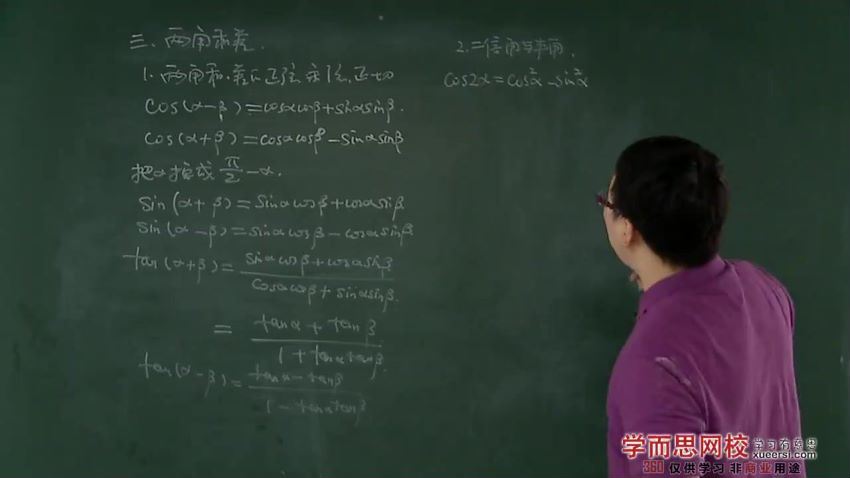 三、两角和差.
1. 两角和、差的正弦、余弦、正切
cos(α-β)=cosαcosβ+sinαsinβ.
cos(α+β)=cosαcosβ-sinαsinβ
把α换成π/2-α.
sin(α+β)=sinαcosβ+cosαsinβ
sin(α-β)=sinαcosβ-cosαsinβ
tan(α+β)=
sinαcosβ+cosαsinβ
cosαcosβ+sinαsinβ.
=
tanα+tanβ
1+tanαtanβ.
tan(α-β)=
tanα-tanβ
1-tanαtanβ
2.二倍角与半角.
cos2α=cos²α-sin²α
学而思网校
学习有意思
xueersi.com
360 仅供学习 非商业用途